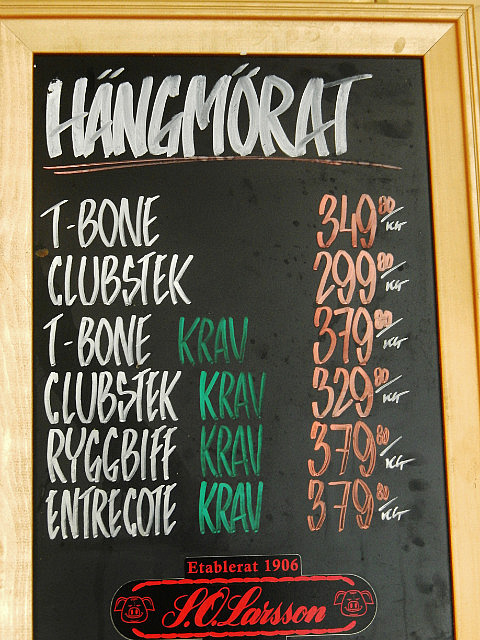 HÄNGMÖRAT
T-BONE 349 80/KG
CLUBSTEK 299 80/KG
T-BONE KRAV 379 80/KG
CLUBSTEK KRAV 329 80/KG
RYGGBIFF KRAV 379 80/KG
ENTRECOTE KRAV 379 80/KG
Etablerat 1906
S.O.Larsson